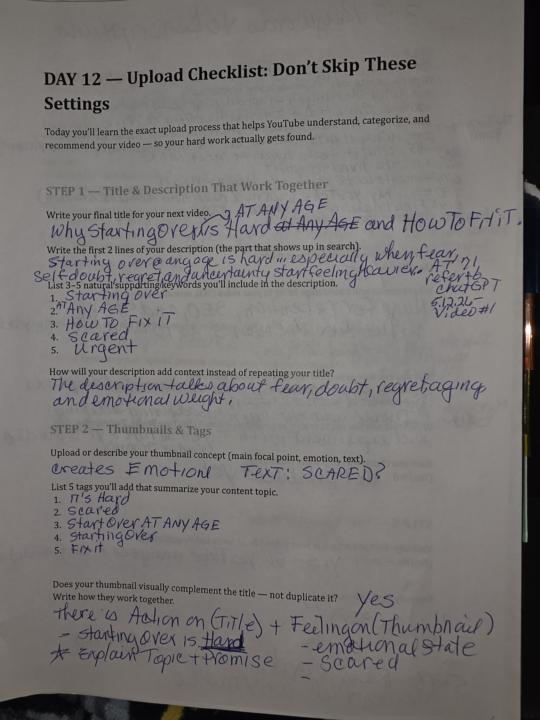 DAY 12 — Upload Checklist: Don't Skip These
Settings
Today you'll learn the exact upload process that helps YouTube understand, categorize, and
recommend your video — so your hard work actually gets found.
STEP 1 — Title & Description That Work Together
Write your final title for your next video. AT ANY AGE
Why Starting Over is Hard at Any AGE and How To Fix iT.
Write the first 2 lines of your description (the part that shows up in search).
Starting over@ang age is hard... especially when fear,
Self-doubt, regret, and uncertainty start feeling Heavier. AT 71,
List 3–5 natural supporting keywords you'll include in the description.
refer to
chatGPT
5.12.26-
Video #1
1. Starting over
2. AT Any AGE
3. How To Fix iT
4. Scared
5. Urgent
How will your description add context instead of repeating your title?
The description talks about fear, doubt, regret, aging
and emotional weight.
STEP 2 — Thumbnails & Tags
Upload or describe your thumbnail concept (main focal point, emotion, text).
Creates Emotionl TexT: SCARED?
List 5 tags you'll add that summarize your content topic.
1. IT's Hard
2. Scared
3. Start Over AT ANY AGE
4. Starting Over
5. Fix it
Does your thumbnail visually complement the title — not duplicate it? Yes
Write how they work together.
There is Action on (Title) + Feeling on (Thumbnail)
- Starting Over is Hard - emotional state
* Explain Topic + Promise - Scared
-